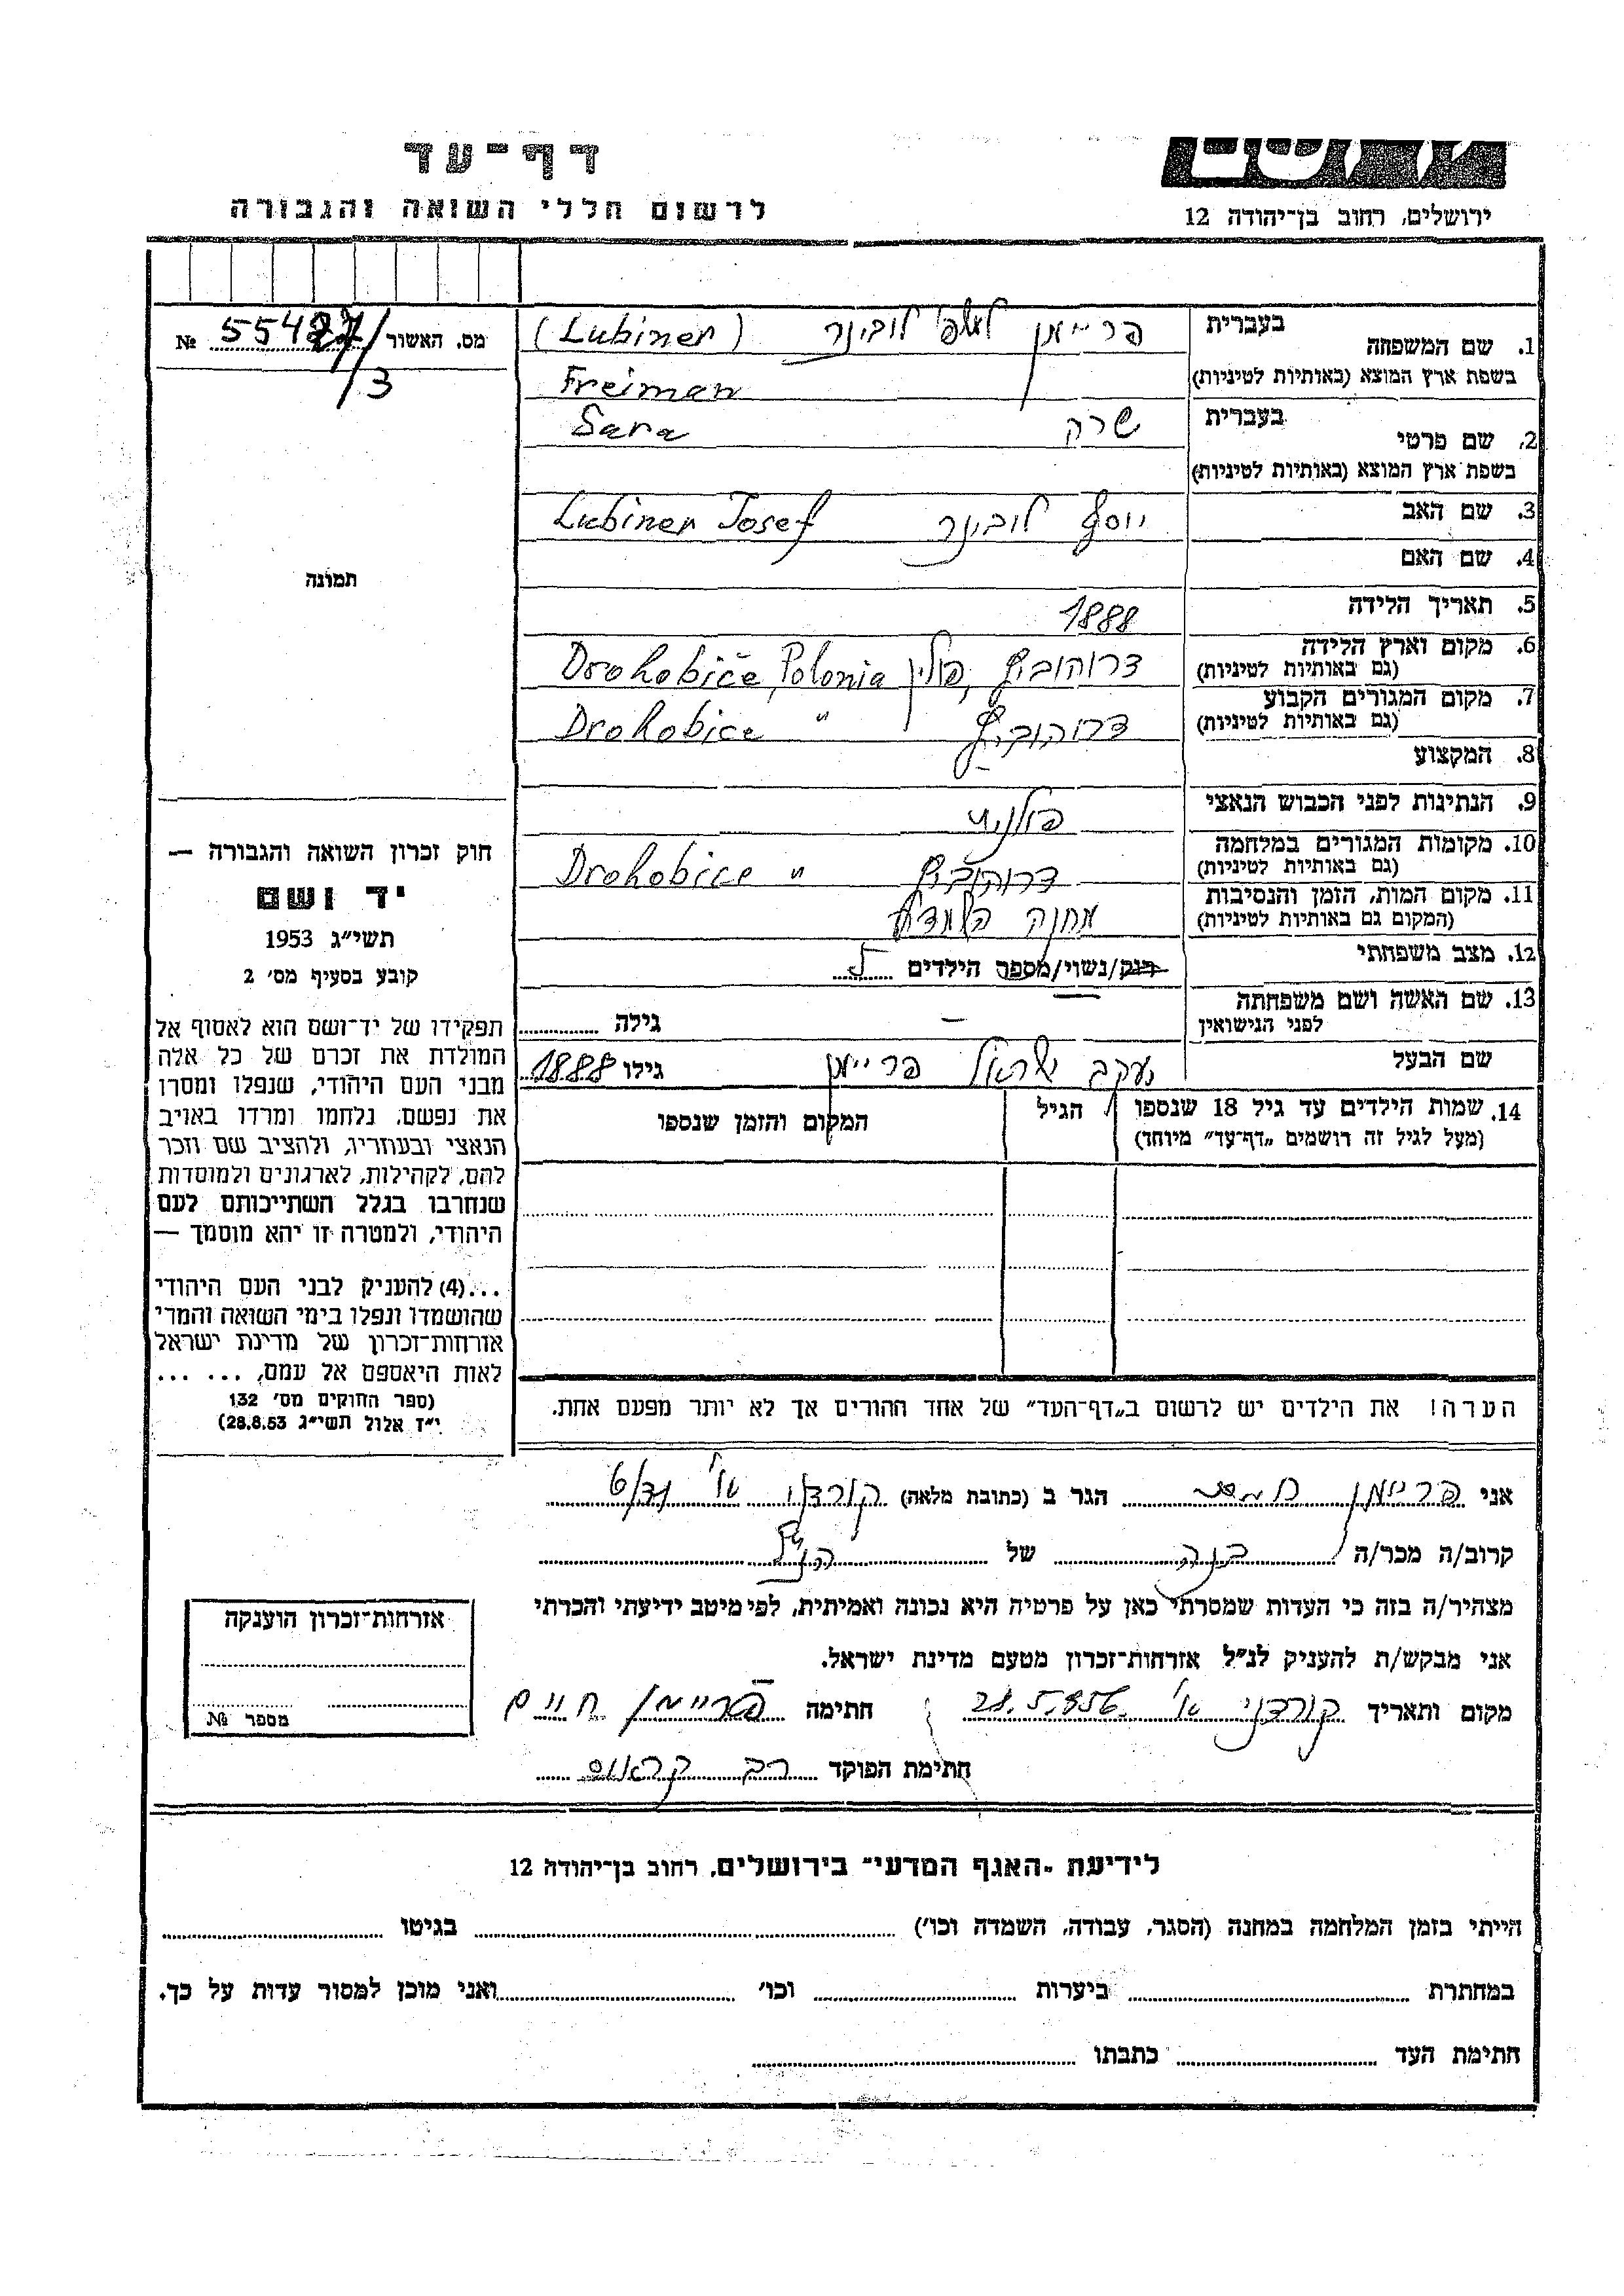 דף-עד
לרשום חללי השואה והגבורה
ירושלים, רחוב בן־יהודה 12
מס. האשור № 55427/3
1. שם המשפחה בעברית פריימן לובינר (Lubiner)
בשפת ארץ המוצא (באותיות לטיניות) Freiman
2. שם פרטי בעברית שרה Sara
בשפת ארץ המוצא (באותיות לטיניות)
3. שם האב יוסף לובינר Lubiner Josef
4. שם האם
5. תאריך הלידה 1888
6. מקום וארץ הלידה דרוהוביץ, פולין Drohobiče, Polonia
(גם באותיות לטיניות)
7. מקום המגורים הקבוע דרוהוביץ Drohobice "
(גם באותיות לטיניות)
8. המקצוע
9. הנתינות לפני הכבוש הנאצי פולנית
10. מקומות המגורים במלחמה דרוהוביץ Drohobice "
(גם באותיות לטיניות)
11. מקום המות, הזמן והנסיבות מחנה השמדה
(המקום גם באותיות לטיניות)
12. מצב משפחתי רוק/נשוי/מספר הילדים 5
13. שם האשה ושם משפחתה – גילה
לפני הנישואין
שם הבעל יעקב ישראל פריימן גילו 1888
14. שמות הילדים עד גיל 18 שנספו הגיל המקום והזמן שנספו
(מעל לגיל זה רושמים „דף־עד" מיוחד)
הערה! את הילדים יש לרשום ב„דף־העד" של אחד ההורים אך לא יותר מפעם אחת.
תמונה
חוק זכרון השואה והגבורה —
יד ושם
תשי״ג 1953
קובע בסעיף מס׳ 2
תפקידו של יד־ושם הוא לאסוף אל
המולדת את זכרם של כל אלה
מבני העם היהודי, שנפלו ומסרו
את נפשם, נלחמו ומרדו באויב
הנאצי ובעוזריו, ולהציב שם וזכר
להם, לקהילות, לארגונים ולמוסדות
שנחרבו בגלל השתייכותם לעם
היהודי, ולמטרה זו יהא מוסמך —
...(4) להעניק לבני העם היהודי
שהושמדו ונפלו בימי השואה והמרי
אזרחות־זכרון של מדינת ישראל
לאות היאספם אל עמם, ... ...
(ספר החוקים מס׳ 132
י״ז אלול תשי״ג 28.8.53)
אני פריימן הגר ב (כתובת מלאה) קורדני א׳
קרוב/ה מכר/ה בנה של הנ״ל
מצהיר/ה בזה כי העדות שמסרתי כאן על פרטיה היא נכונה ואמיתית, לפי מיטב ידיעתי והכרתי
אני מבקש/ת להעניק לנ״ל אזרחות־זכרון מטעם מדינת ישראל.
מקום ותאריך קורדני א׳ 28.5.956 חתימה פריימן חיים
חתימת הפוקד רב קראוס
אזרחות־זכרון הוענקה
מספר №
לידיעת „האגף המדעי" בירושלים, רחוב בן־יהודה 12
הייתי בזמן המלחמה במחנה (הסגר, עבודה, השמדה וכו׳) בגיטו
במחתרת ביערות וכו׳ ואני מוכן למסור עדות על כך.
חתימת העד כתבתו